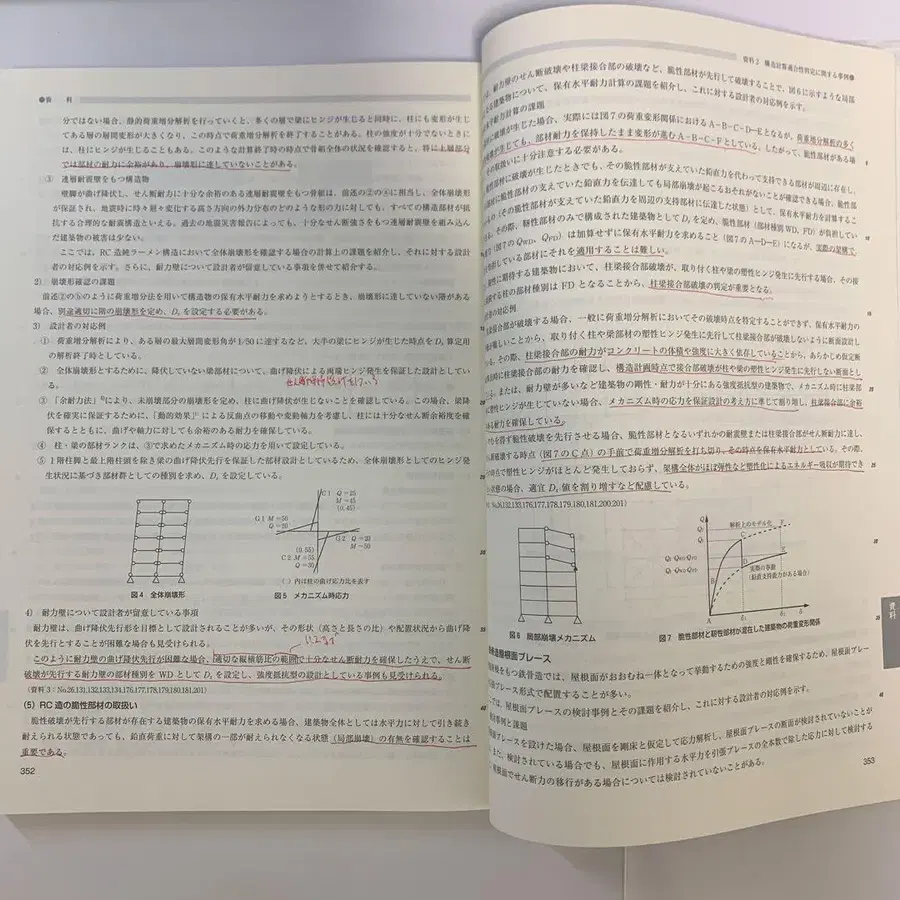 ●資　料
分ではない場合、静的荷重増分解析を行っていくと、多くの層で梁にヒンジが生じると同時に、柱にも変形が生じ
てある層の層間変形が大きくなり、この時点で荷重増分解析を終了することがある。柱の強度が十分でないときに
は、柱にヒンジが生じることもある。このような計算終了時の時点で骨組全体の状況を確認すると、特に上層部分
では部材の耐力に余裕があり、崩壊形に達していないことがある。
③　連層耐震壁をもつ構造物
壁脚が曲げ降伏し、せん断耐力に十分な余裕のある連層耐震壁をもつ骨組は、前述の②の④に相当し、全体崩壊形
が保証され、地震時に時々刻々変化する高さ方向の外力分布のどのような形の力に対しても、すべての構造部材が抵
抗する合理的な耐震構造といえる。過去の地震災害報告によっても、十分なせん断強さをもつ連層耐震壁を組み込ん
だ建築物の被害は少ない。
ここでは、RC 造純ラーメン構造において全体崩壊形を確認する場合の計算上の課題を紹介し、それに対する設計
者の対応例を示す。さらに、耐力壁について設計者が留意している事項を併せて紹介する。
2)　崩壊形確認の課題
前述②の⑤のように荷重増分法を用いて構造物の保有水平耐力を求めようとするとき、崩壊形に達していない階がある
場合、別途適切に階の崩壊形を定め、Dsを設定する必要がある。
3)　設計者の対応例
①　荷重増分解析により、ある層の最大層間変形角が 1/50 に達するなど、大半の梁にヒンジが生じた時点を Ds 算定用
の解析終了時としている。
②　全体崩壊形とするために、降伏していない梁部材について、曲げ降伏による両端ヒンジ発生を保証した設計としてい
る。
③　「余耐力法」により、未崩壊部分の崩壊形を確定し、梁曲げ降伏後に柱曲げ降伏が生じないことを確認している。この場合、梁降
伏を確実に保証するために、「動的効果」による反曲点の移動や変動軸力を考慮し、柱には十分なせん断余裕度を確
保するとともに、曲げや軸力に対しても余裕のある耐力を確保している。
④　柱・梁の部材ランクは、③で求めたメカニズム時の応力を用いて設定している。
⑤　1 階柱脚と最上階柱頭を除き梁の曲げ降伏先行を保証した部材設計としているため、全体崩壊形としてのヒンジ発
生状況に基づき部材群としての種別を求め、Dsを設定している。
C1　Q=25
M=45
(0.45)
G1　M=50
Q=20
G2　Q=20
M=50
(0.55)
C2　M=55
Q=30
(　) 内は柱の曲げ応力比を表す
図4　全体崩壊形
図5　メカニズム時応力
4)　耐力壁について設計者が留意している事項
耐力壁は、曲げ降伏先行形を目標として設計されることが多いが、その形状（高さと長さの比）や配置状況から曲げ降
伏を先行とすることが困難な場合も見受けられる。
このように耐力壁の曲げ降伏先行が困難な場合、適切な縦横筋比の範囲で十分なせん断耐力を確保したうえで、せん断
破壊が先行する耐力壁の部材種別を WD として Dsを設定し、強度抵抗型の設計としている事例も見受けられる。
(資料 3：No.26,131,132,133,134,176,177,178,179,180,181,201)
(5) RC 造の脆性部材の取扱い
脆性破壊が先行する部材が存在する建築物の保有水平耐力を求める場合、建築物全体としては水平力に対して引き続き
耐えられる状態であっても、鉛直荷重に対して架構の一部が耐えられなくなる状態（局部崩壊）の有無を確認することは
重要である。
352
資料3　構造計算適合性判定に関する事例●
、耐力壁のせん断破壊や柱梁接合部の破壊など、脆性部材が先行して破壊することで、図6に示すような局部
る建築物について、保有水平耐力計算の課題を紹介し、これに対する設計者の対応例を示す。
水平耐力計算の課題
破壊が生じた場合、実際には図7の荷重変形関係における A-B-C-D-E となるが、荷重増分解析の多く
破壊が生じても、部材耐力を保持したまま変形が進む A-B-C-F としている。したがって、脆性部材がある場
その取扱いに十分注意する必要がある。
性部材に破壊が生じたときでも、その脆性部材が支えていた鉛直力を代わって支持できる部材が周辺に存在し、
部材に脆性部材の支えていた鉛直力を伝達しても局部崩壊が起こるおそれがないことが確認できる場合、脆性部
もの（その脆性部材が支えていた鉛直力を周辺の支持部材に伝達した状態）として、保有水平耐力を計算するこ
る。その際、靱性部材のみで構成された建築物として Dsを定め、脆性部材（部材種別 WD, FD）が負担してい
（図7の QWD、QFD）は加算せずに保有水平耐力を求めること（図7の A-D-E）になるが、実際の架構で、
担している部材にそれを適用することは難しい。
性に期待する建築物において、柱梁接合部破壊が、取り付く柱や梁の塑性ヒンジ発生に先行する場合、その接
接する柱の部材種別は FD となることから、柱梁接合部破壊の判定が重要となる。
者の対応例
接合部が破壊する場合、一般に荷重増分解析においてその破壊時点を特定することができず、保有水平耐力の
が難しいことから、取り付く柱や梁部材の塑性ヒンジ発生に先行して柱梁接合部が破壊しないように断面設計し
る。その際、柱梁接合部の耐力がコンクリートの体積や強度に大きく依存していることから、あらかじめ仮定断
時に柱梁接合部の耐力を確認し、構造計画時点で接合部破壊が柱や梁の塑性ヒンジ発生に先行しない断面とし
る。または、耐力壁が多いなど建築物の剛性・耐力が十分にある強度抵抗型の建築物で、メカニズム時に柱梁部
に塑性ヒンジが生じていない場合、メカニズム時の応力を保証設計の考え方に準じて割り増し、柱梁接合部に余裕
ある耐力を確保している。
を得ず脆性破壊を先行させる場合、脆性部材となるいずれかの耐震壁または柱梁接合部がせん断耐力に達し、
破壊する時点（図7のC点）の手前で荷重増分解析を打ち切り、その時点を保有水平耐力としている。その際、
時点で塑性ヒンジがほとんど発生しておらず、架構全体がほぼ弾性など塑性化によるエネルギー吸収が期待でき
状態の場合、適宜 Ds 値を割り増すなど配慮している。
No.26,132,133,176,177,178,179,180,181,200,201)
解析上のモデル化
実際の挙動
(鉛直支持能力がある場合)
図6　局部崩壊メカニズム
図7　脆性部材と靱性部材が混在した建築物の荷重変形関係
骨造屋根面ブレース
根をもつ鉄骨造では、屋根面がおおむね一体となって挙動するための強度と剛性を確保するため、屋根面ブレー
ブレース形式で配置することが多い。
では、屋根面ブレースの検討事例とその課題を紹介し、これに対する設計者の対応例を示す。
事例と課題
面ブレースを設けた場合、屋根面を剛床と仮定して応力解析し、屋根面ブレースの断面が検討されていないことが
また、検討されている場合でも、屋根面に作用する水平力を引張ブレースの全本数で除した応力に対して検討する
屋根面でせん断力の移行がある場合については検討されていないことがある。
353
資料